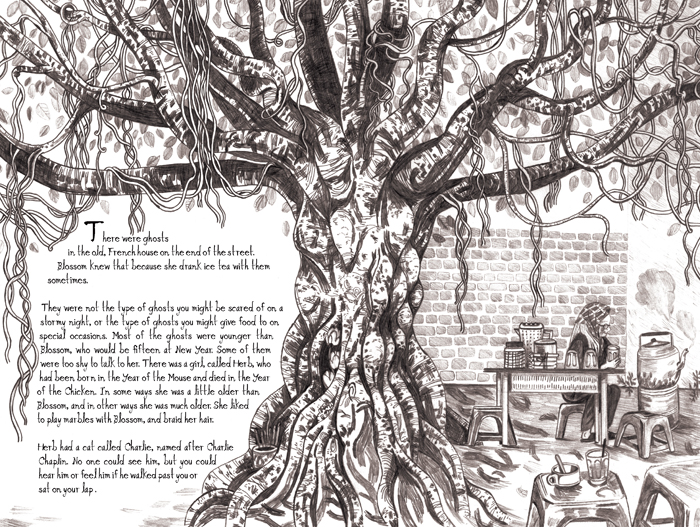 There were ghosts
in the old, French house on the end of the street.
Blossom knew that because she drank ice tea with them
sometimes.
They were not the type of ghosts you might be scared of on a
stormy night, or the type of ghosts you might give food to on
special occasions. Most of the ghosts were younger than
Blossom, who would be fifteen at New Year. Some of them
were too shy to talk to her. There was a girl, called Herb, who
had been born in the Year of the Mouse and died in the Year
of the Chicken. In some ways she was a little older than
Blossom, and in other ways she was much older. She liked
to play marbles with Blossom, and braid her hair.
Herb had a cat called Charlie, named after Charlie
Chaplin. No one could see him, but you could
hear him or feel him if he walked past you or
sat on your lap.